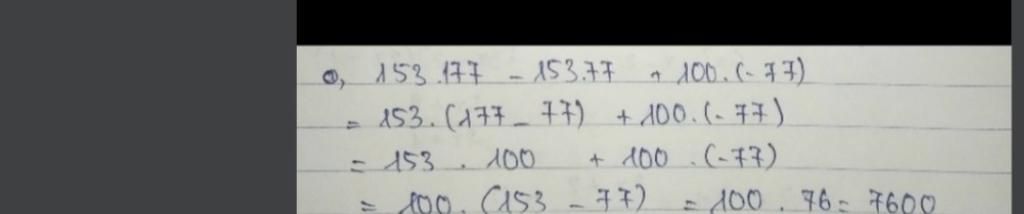 e, 153.177 - 153.77 + 100.(-77)
= 153.(177 - 77) + 100.(-77)
= 153 . 100 + 100 .(-77)
= 100. (153 - 77) = 100 . 76 = 7600